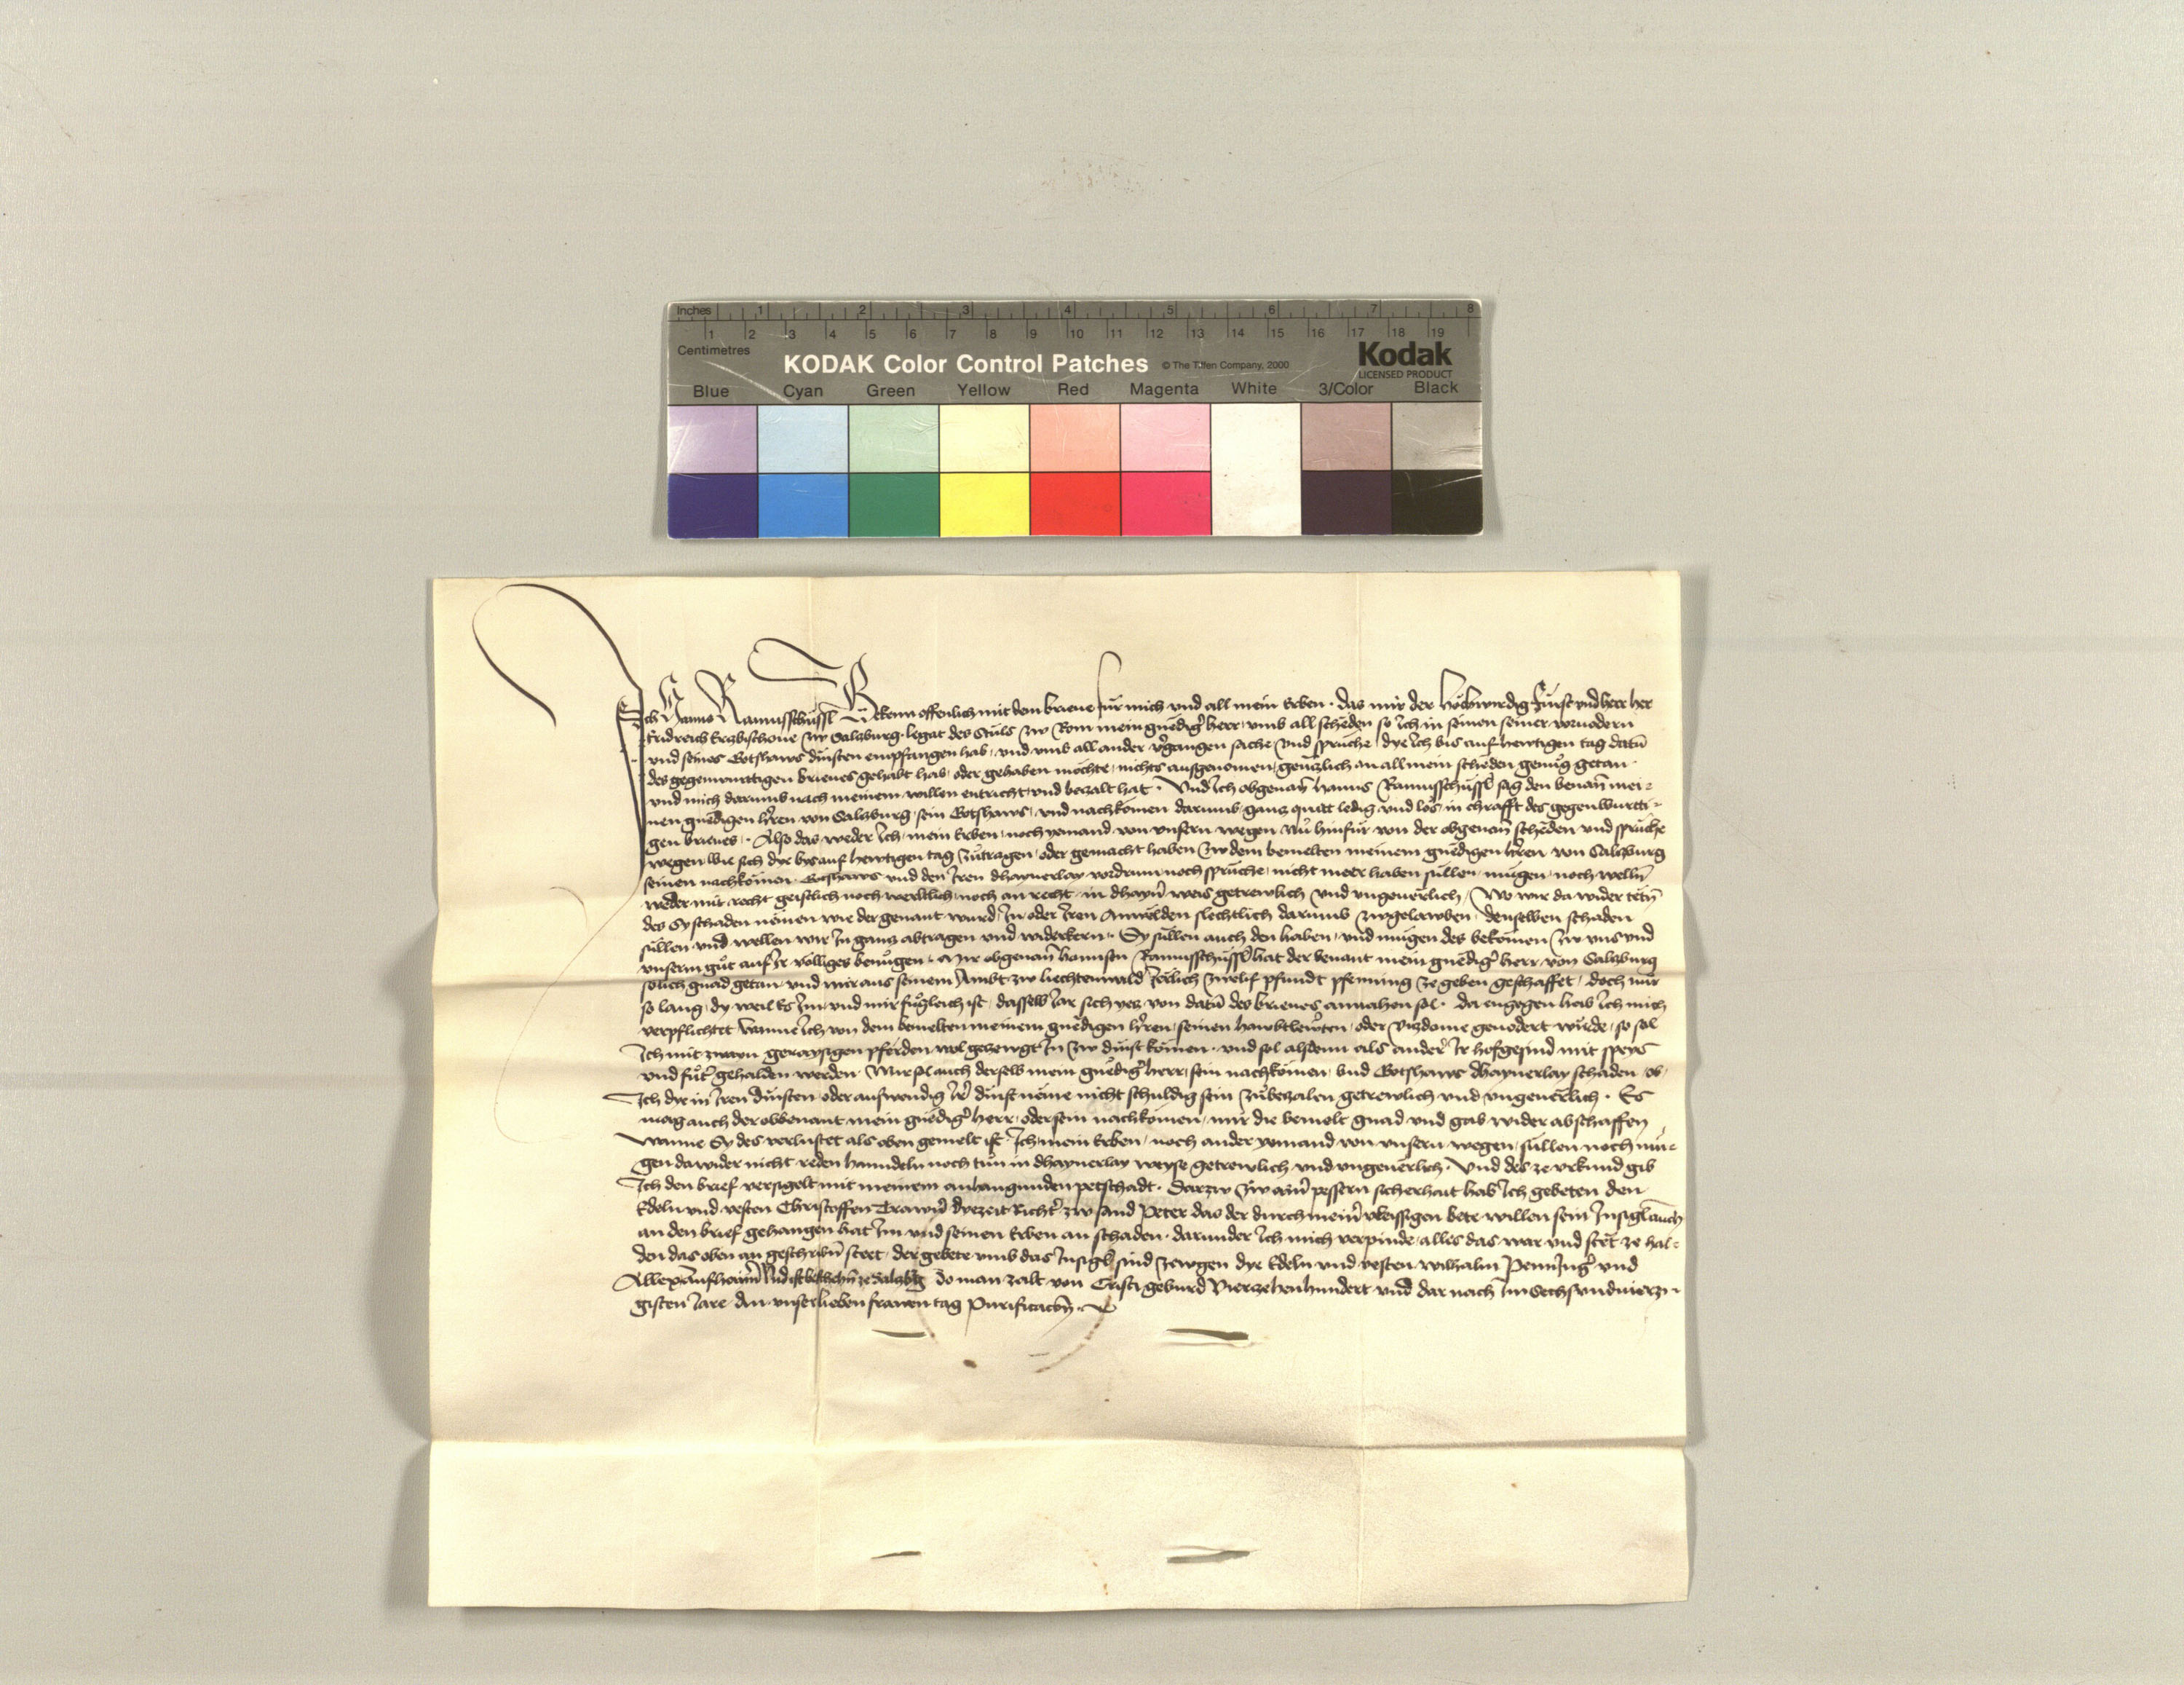 Inches 1 2 3 4 5 6 7 8
1 2 3 4 5 6 7 8 9 10 11 12 13 14 15 16 17 18 19
Centimetres
KODAK Color Control Patches © The Tiffen Company, 2000 Kodak
LICENSED PRODUCT
Blue Cyan Green Yellow Red Magenta White 3/Color Black
Ich Hanns Ramusschüssl Bekenn offenlich mit dem brieue für mich und all mein Erben · das mir der hochwirdig Fürst und herr her
Fridreich Erzbischoue zw Salzburg · legat des Stůls zw Rom mein gnedig' herr, vmb all scheden so Ich in seinen seiner voruodern
und seines Gotshaws dinsten empfangen hab, und vmb all ander v'gangen sache und sprüche, dye Ich bis auf hewtigen tag datū
des gegenwurttigen brieues gehabt hab, oder gehaben möchte, nichts ausgenomen, genczlich an all mein scheden genůg getan ·
und mich darumb nach meinem willen entricht und beczalt hat · Vnd Ich obgenān Hanns Ramusschüssl sag den benān mei-
nen gnedigen h'ren von Salzburg, sein Gotshaws, und nachkomen darumb ganz quitt ledig und los in chrafft des gegenwurtti-
gen brieues · Also das weder Ich, mein Erben, noch yemand von vnsern wegen nu hinfür von der obgenān scheden und sprüche
wegen wie sich dye bys auf hewtigen tag zůtragen, oder gemacht haben zw dem bemelten meinem gnedigen h'ren von Salzburg
seinen nachkomen, Gotshaws und den Iren dhaynerlay vodrum noch sprüche, nicht meer haben süllen, mügen, noch welln
weder mit recht geistlich noch werltlich, noch an recht, in dhayn weis getrewlich und vngeuerlich, Wo wir da wider tetn
des Sy schaden nemen wie der genant wurd, In oder Iren Anwelden slechtlich darumb zwgelawben, denselben schaden
süllen und wellen wir In ganz abtragen und widerkern · Sy süllen auch den haben, und mügen des bekomen zw vns und
vnserm gůt auf Ir völliges benügen · Mir obgenān Hannsen Ramusschüssl hat der benant mein gnedig' herr von Salzburg
solich gnad getan, und mir aus seinem Ambt zw liechtenwald Jerlich zwelif pfundt pfenning ze geben geschaffet, doch nur
so lang, dy weil Es Im und mir fügleich ist, dasselb Iar sich yez von datū des brieues anuahen sol · da engegen hab Ich mich
verpflichtet wanne Ich von dem bemelten meinem gnedigen h'ren, seinen hawbtlewten, oder Vizdome geuodert würde, so sol
Ich mit zwayn geraysigen pferden wol gezewgt In zw dinst komen · und sol alsdenn als ander Ir hofgesind mit speys
und fůt' gehalden werden · Mir sol auch derselb mein gnedig' herr, sein nachkomen, und Gotshaws dhaynerlay schaden, ob
Ich dye in Iren dinsten oder auswendig Ir' dinst neme nicht schuldig sein zůbeczalen getrewlich und vngeuerlich · Es
mag auch der obbenant mein gnedig' herr, oder sein nachkomen, mir die bemelt gnad und gab wider abschaffen
Wanne Sy des verlustet als oben gemelt ist · Ich, mein Erben, noch ander yemand von vnsern wegen, süllen noch mü-
gen dawider nicht reden hanndeln noch tůn in dhaynerlay weyse getrewlich und vngeuerlich · Vnd des ze vrkund gib
Ich den brief versigelt mit meinem anhangunden petschadt · Darzw zw ayn' pessern sicherhait hab Ich gebeten den
Edeln und vesten Christoffen Trawn' dyezeit Richt' zw sand Peter das der durch mein' vleissigen bete willen sein Insigl auch
an den brief gehangen hat Im und seinen Erben an schaden · darunder Ich mich verpinde alles das war und stet ze hal-
den das oben an geschribn steet · der gebete vmb das Insigl sind zewgen dye Edeln und vesten wilhalm und
do man zalt von Cristi geburd Vierzehenhundert und dar nach Im Sechsundvierzi-
gisten Jare An vnser lieben frawen tag Purificacōn ·